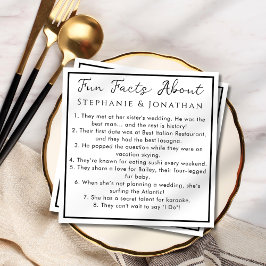 Fun Facts About
STEPHANIE & JONATHAN
1. They met at her sister's wedding. He was the
best man... and the rest is history!
2. Their first date was at Best Italian Restaurant,
and they had the best lasagna.
3. He popped the question while they were on
vacation skiing.
4. They're known for eating sushi every weekend.
5. They share a love for Bailey, their four-legged
fur baby.
6. When she's not planning a wedding, she's
surfing the Atlantic!
7. She has a secret talent for karaoke.
8. They can't wait to say "I Do"!